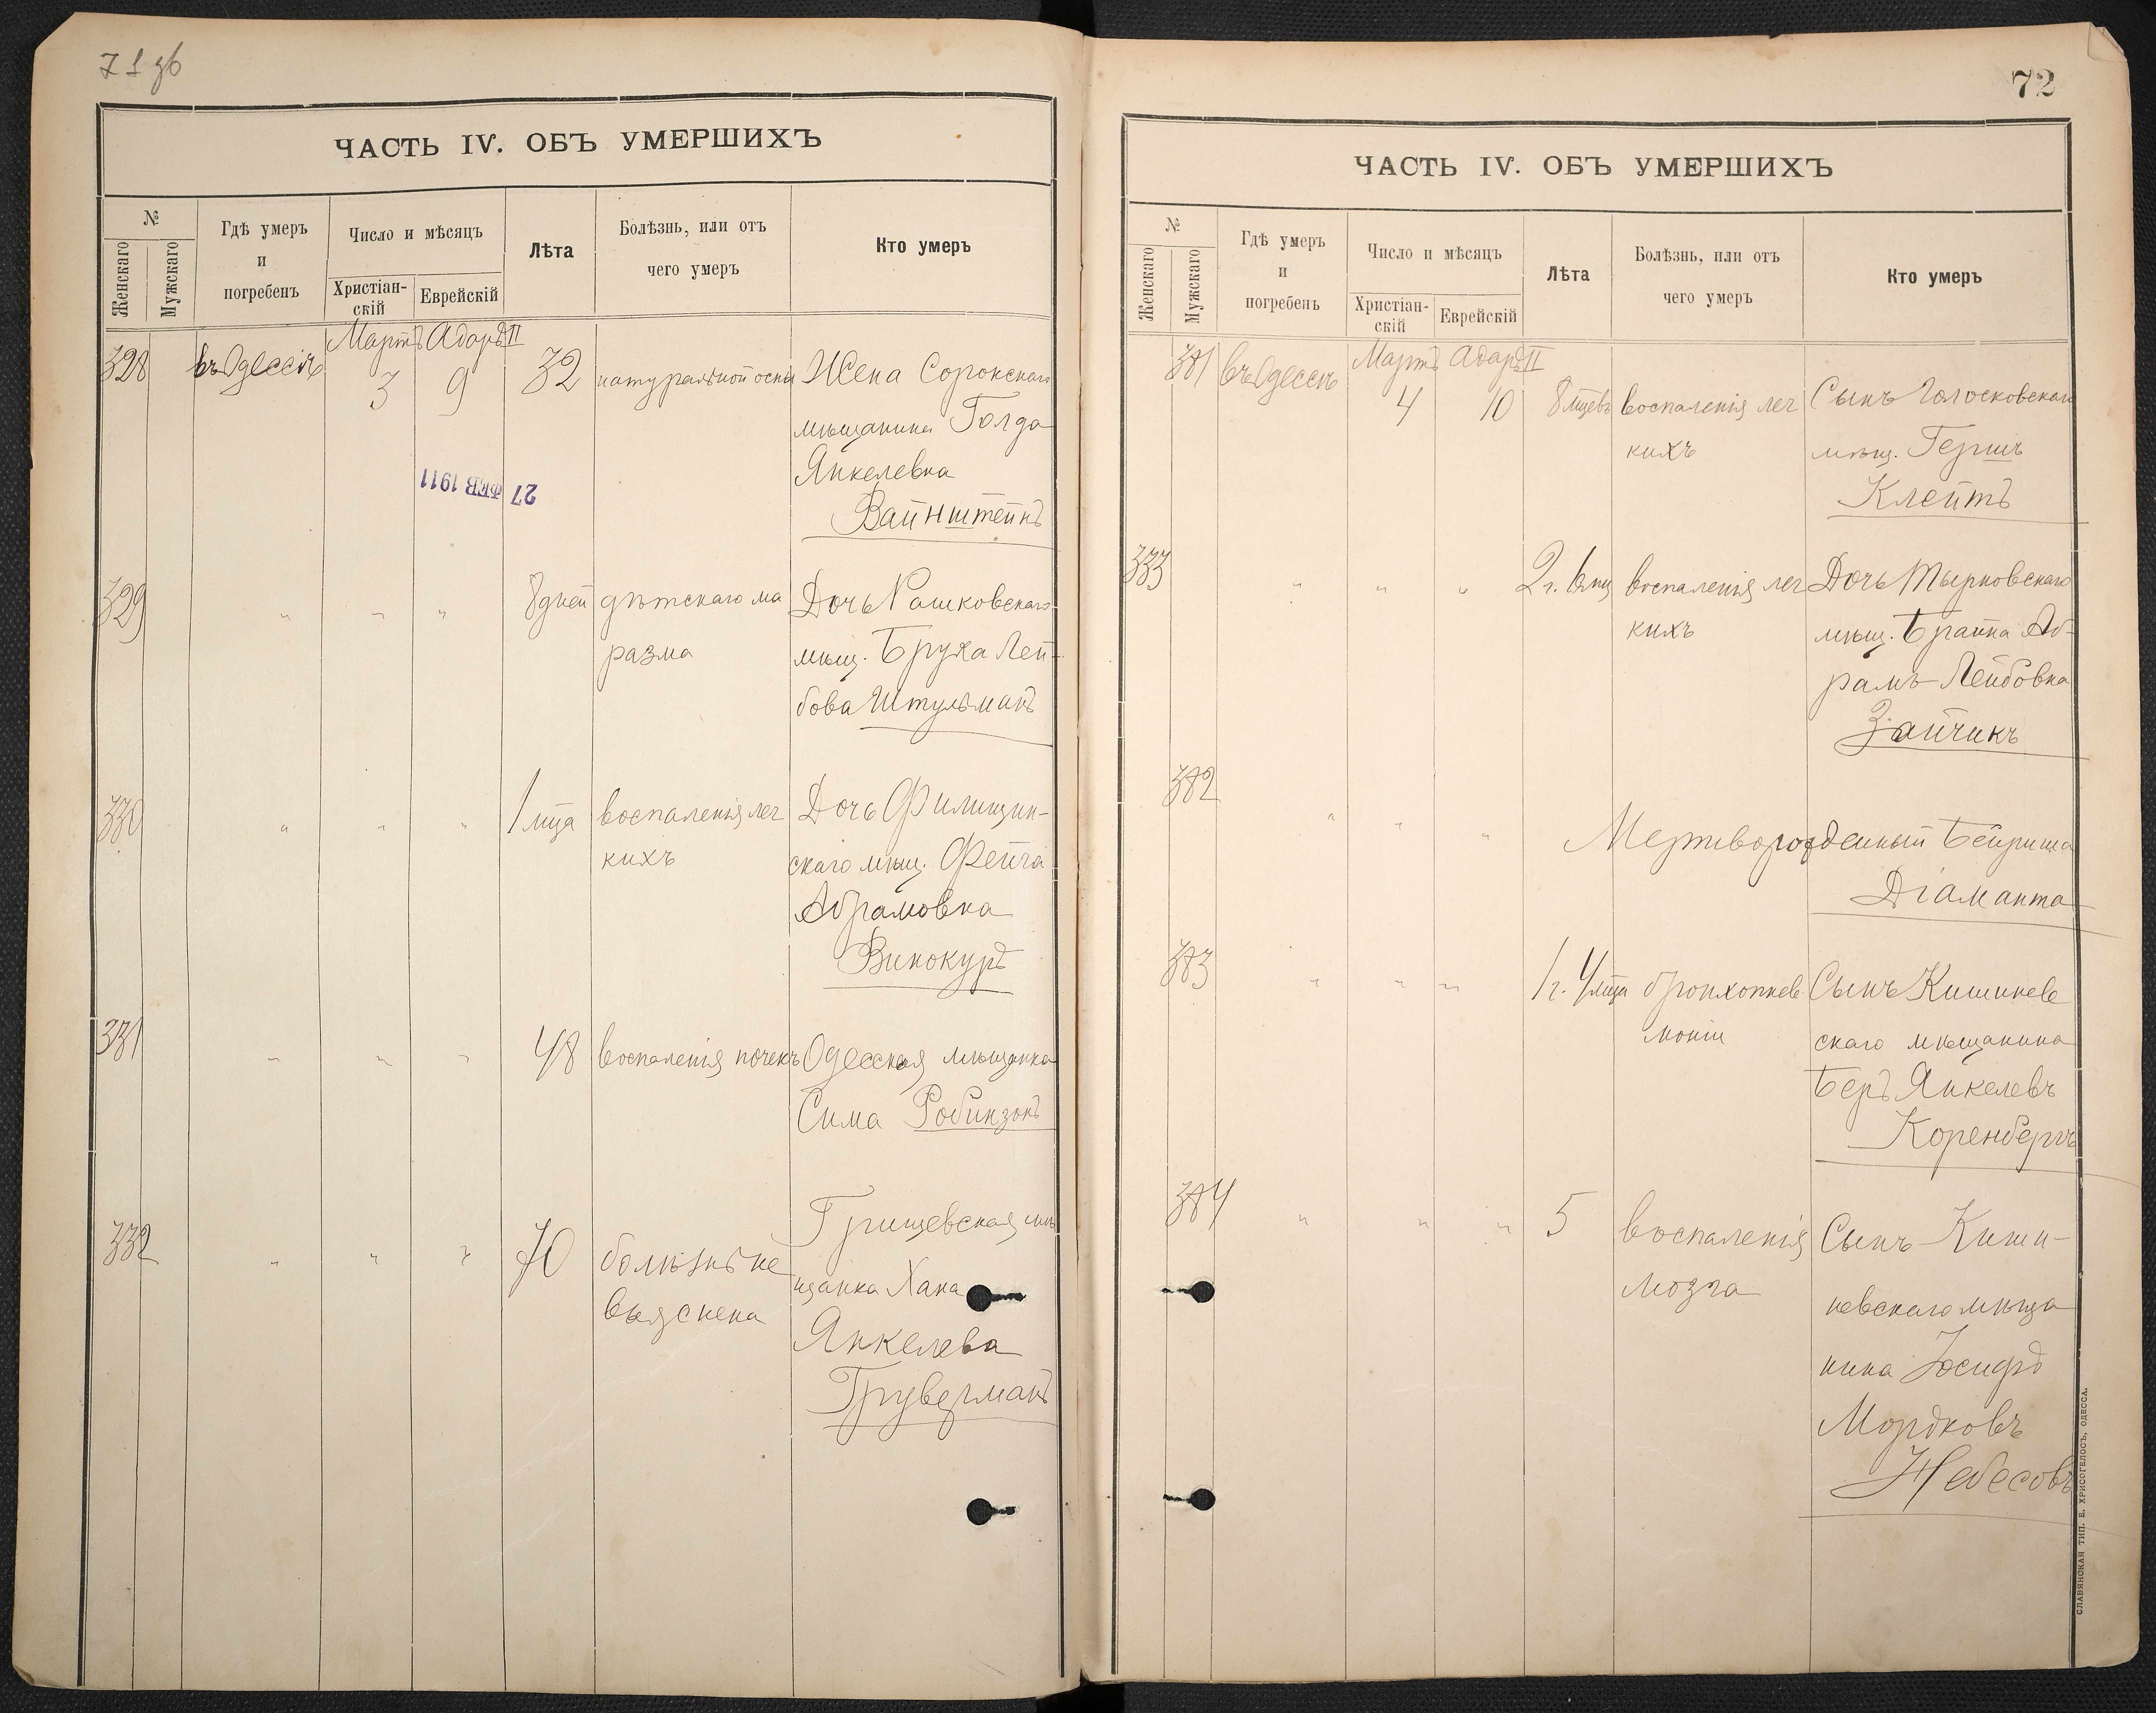 71 зв
ЧАСТЬ IV. ОБЪ УМЕРШИХЪ
№
Женскаго
Мужскаго
Гдѣ умеръ
и
погребенъ
Число и мѣсяцъ
Христіан-
скій
Еврейскій
Лѣта
Болѣзнь, или отъ
чего умеръ
Кто умеръ
Мартъ Адаръ II
328 въ Одессѣ 3 9 32 натуральной оспы Жена Сорокскаго
мѣщанина Голда
Янкелевна
Вайнштейнъ
27 ФЕВ 1911
329 " " " 8 дней дѣтскаго ма Дочь Рашковскаго
разма мѣщ. Бруха Лей-
бова Штульманъ
330 " " " 1 мца воспаленія лег Дочь Филищин-
кихъ скаго мѣщ. Фейга
Абрамовна
Винокуръ
331 " " " 48 воспаленія почекъ Одесская мѣщанка
Сима Робинзонъ
332 " " " 70 болѣзнь не Грищевская мѣ
выяснена щанка Хана
Янкелева
Груверманъ
72
ЧАСТЬ IV. ОБЪ УМЕРШИХЪ
№
Женскаго
Мужскаго
Гдѣ умеръ
и
погребенъ
Число и мѣсяцъ
Христіан-
скій
Еврейскій
Лѣта
Болѣзнь, или отъ
чего умеръ
Кто умеръ
Мартъ Адаръ II
381 въ Одессѣ 4 10 8 мцевъ воспаленія лег Сынъ Голосковскаго
кихъ мѣщ. Гершъ
Клейтъ
333 " " " 2 г. 6 мц воспаленія лег Дочь Тырновскаго
кихъ мѣщ. Брайна Аб-
рамъ-Лейбовна
Зайчикъ
382 " " " Мертворожденный Бейриша
Діаманта
383 " " " 1 г. 4 мца бронхопнев Сынъ Кишинев
моніи скаго мѣщанина
Беръ Янкелевъ
Коренбергъ
384 " " " 5 воспаленія Сынъ Киши-
мозга невскаго мѣща
нина Іосифъ
Мордковъ
Небесовъ
СЛАВЯНСКАЯ ТИП. Е. ХРИСОГЕЛОСЪ, ОДЕССА.